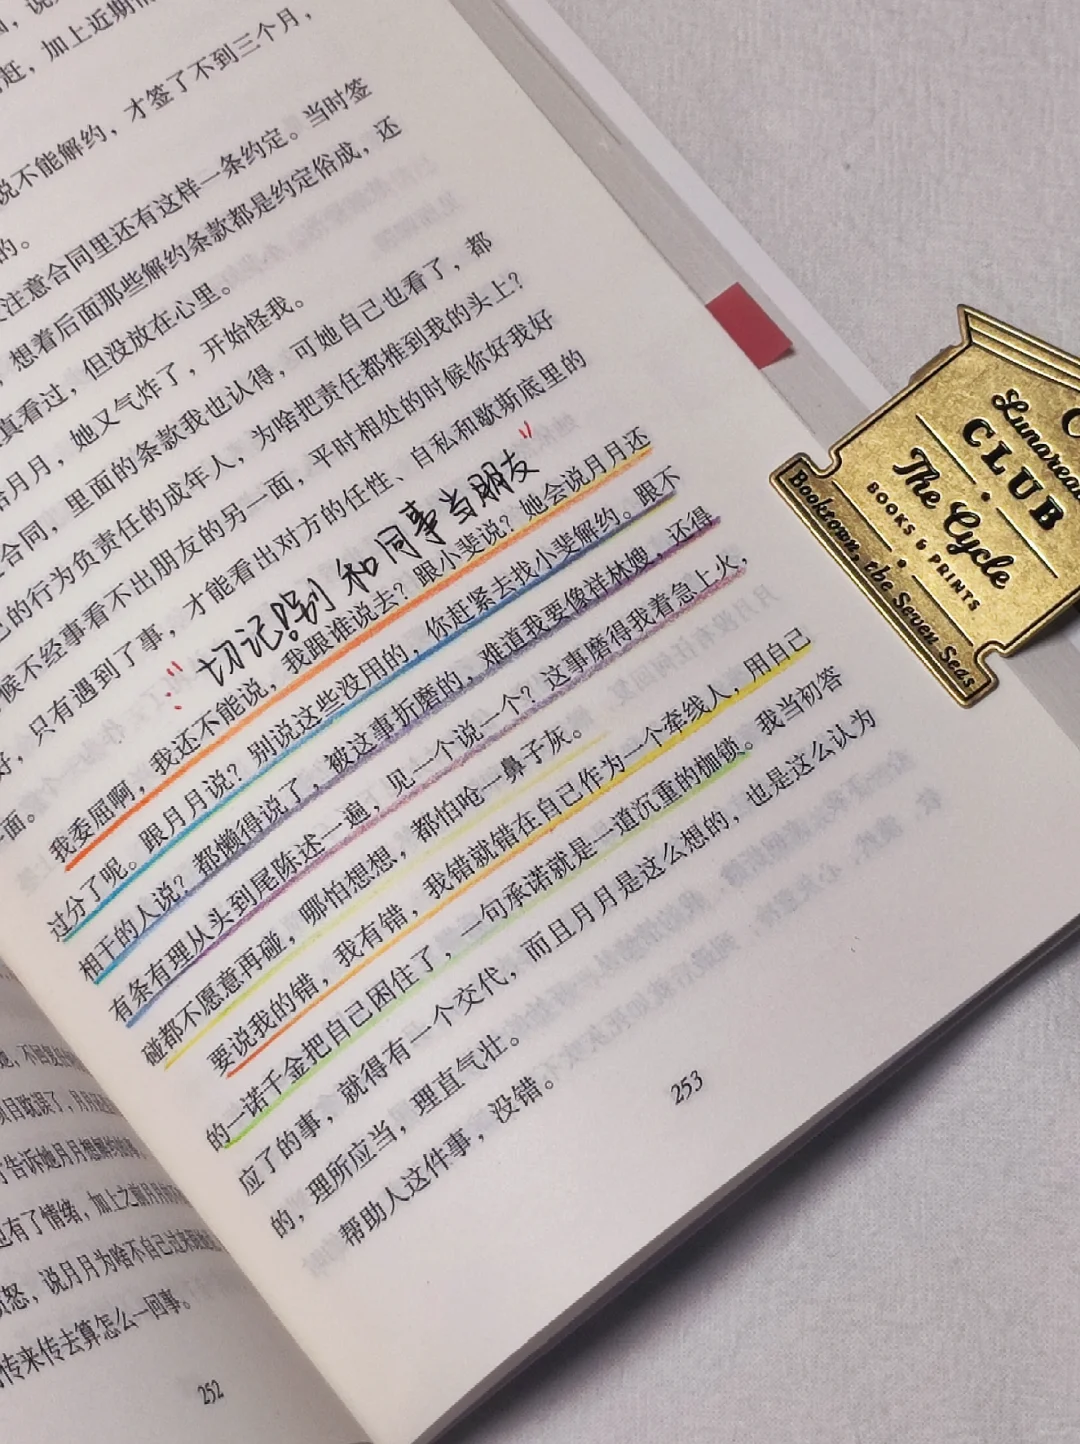 ，加上近期
说不能解约，才签了不到三个月，
的。
注意合同里还有这样一条约定。当时签
，想着后面那些解约条款都是约定俗成，还
真看过，但没放在心里。
月月，她又气炸了，开始怪我。
合同，里面的条款我也认得，可她自己也看了，都
己的行为负责任的成年人，为啥把责任都推到我的头上？
候不经事看不出朋友的另一面，平时相处的时候你好我好
好，只有遇到了事，才能看出对方的任性、自私和歇斯底里的
面。
切记！别和同事当朋友
我委屈啊，我还不能说，我跟谁说去？跟小斐说？她会说月月还
过分了呢。跟月月说？别说这些没用的，你赶紧去找小斐解约。跟不
相干的人说？都懒得说了，被这事折磨的，难道我要像祥林嫂，还得
有条有理从头到尾陈述一遍，见一个说一个？这事磨得我着急上火，
碰都不愿意再碰，哪怕想想，都怕呛一鼻子灰。
要说我的错，我有错，我错就错在自己作为一个牵线人，用自己
的一诺千金把自己困住了，一句承诺就是一道沉重的枷锁。我当初答
应了的事，就得有一个交代，而且月月是这么想的，也是这么认为
的，理所应当，理直气壮。
帮助人这件事，没错。
253
项目耽误了，月
告诉她月月想解约的事
也有了情绪，加上之前月月
怒，说月月为啥不自己过来
传来传去算怎么一回事。
252
Lunarean
CLUB
The Cycle
BOOKS & PRINTS
Booktown, the Seven Seas